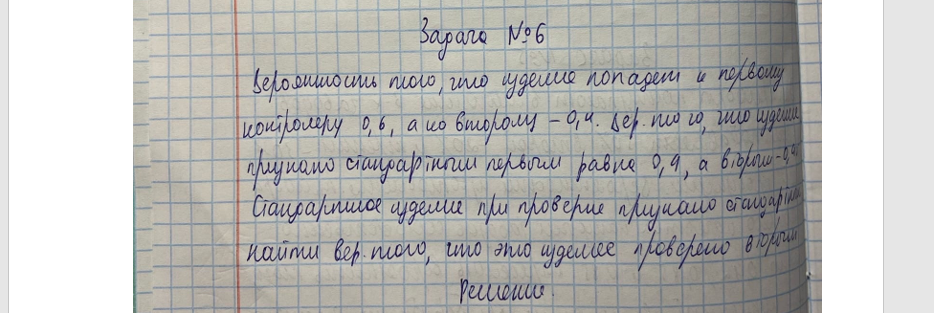 Задача №6
Вероятность того, что изделие попадет к первому
контролеру 0,6, а ко второму – 0,4. Вер. того, что изделие
признано стандартным первым равна 0,9, а вторым -
Стандартное изделие при проверке признано стандартным
найти вер. того, что это изделие проверено вторым
Решение.